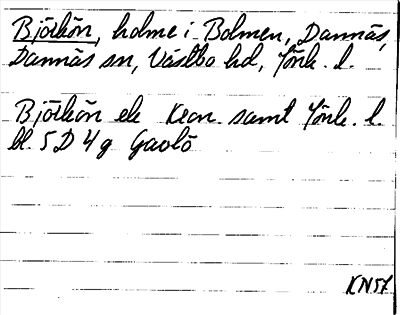 Björkön, holme i Bolmen, Dannäs,
Dannäs sn, Västbo hd, Jönk. l.
Björkön ek Kean. samt Jönk. l.
bl. 5 D 4 g Gavlö
KN57